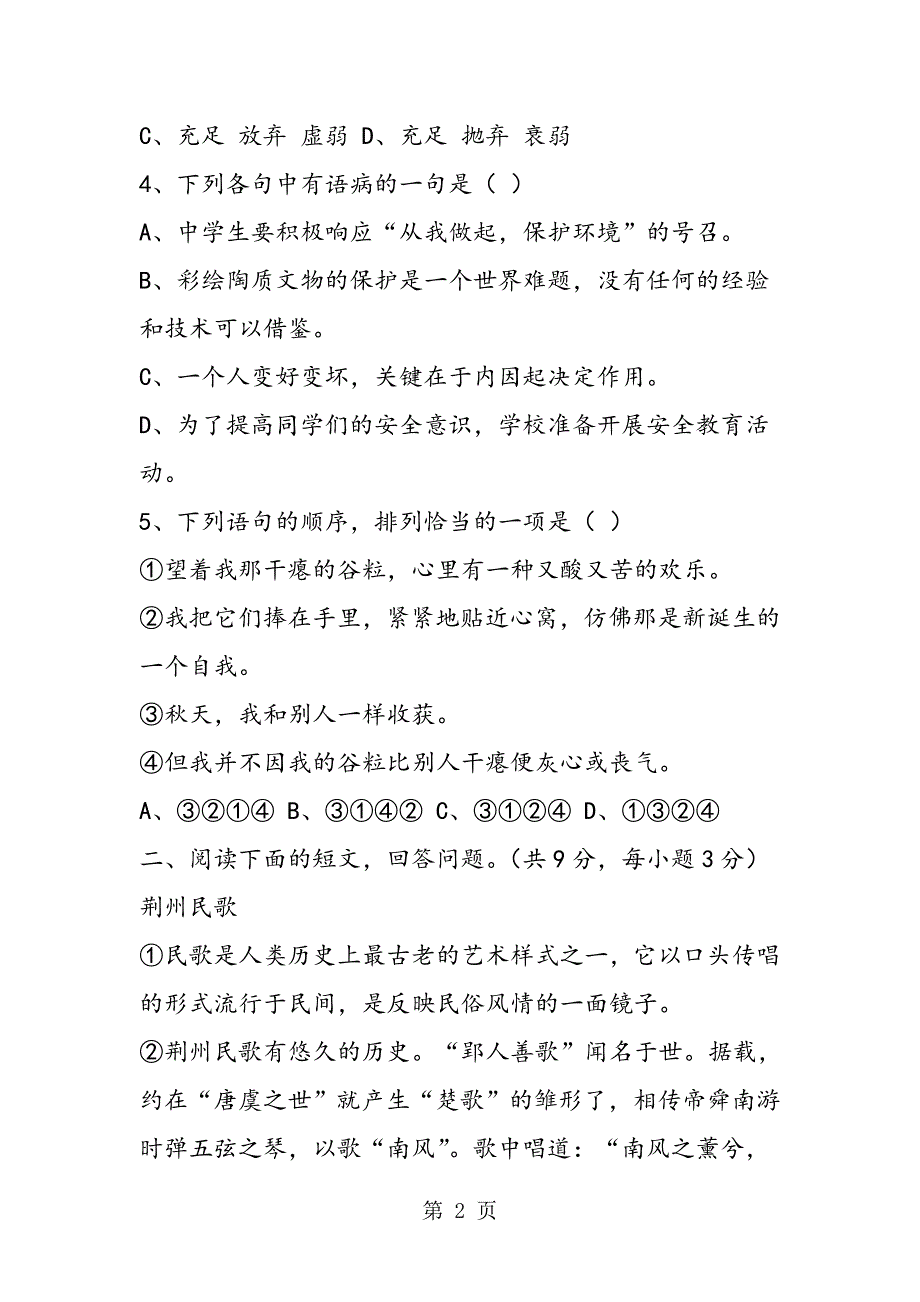 C、充足 放弃 虚弱 D、充足 抛弃 衰弱
4、下列各句中有语病的一句是（ ）
A、中学生要积极响应“从我做起，保护环境”的号召。
B、彩绘陶质文物的保护是一个世界难题，没有任何的经验
和技术可以借鉴。
C、一个人变好变坏，关键在于内因起决定作用。
D、为了提高同学们的安全意识，学校准备开展安全教育活
动。
5、下列语句的顺序，排列恰当的一项是（ ）
①望着我那干瘪的谷粒，心里有一种又酸又苦的欢乐。
②我把它们捧在手里，紧紧地贴近心窝，仿佛那是新诞生的
一个自我。
③秋天，我和别人一样收获。
④但我并不因我的谷粒比别人干瘪便灰心或丧气。
A、③②①④ B、③①④② C、③①②④ D、①③②④
二、阅读下面的短文，回答问题。（共9分，每小题3分）
荆州民歌
①民歌是人类历史上最古老的艺术样式之一，它以口头传唱
的形式流行于民间，是反映民俗风情的一面镜子。
②荆州民歌有悠久的历史。“郢人善歌”闻名于世。据载，
约在“唐虞之世”就产生“楚歌”的雏形了，相传帝舜南游
时弹五弦之琴，以歌“南风”。歌中唱道：“南风之薰兮，
第 2 页